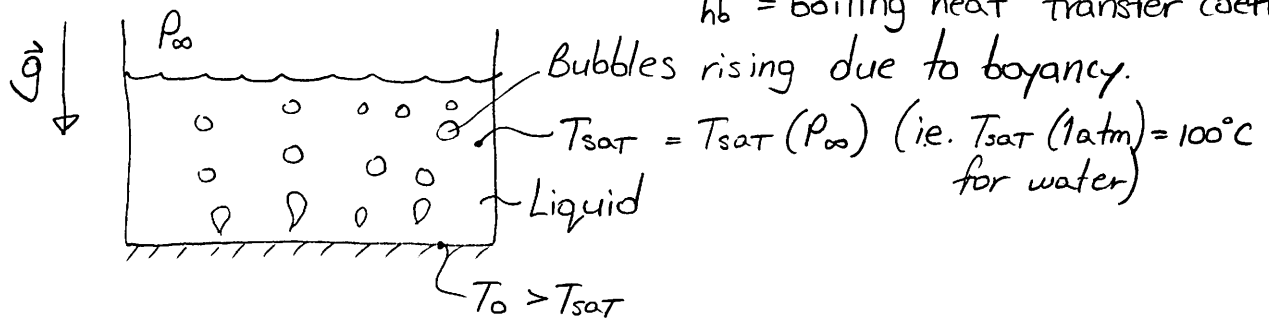 hb = boiling heat transfer
P∞
g⃗
Bubbles rising due to boyancy.
Tsat = Tsat (P∞) (i.e. Tsat (1atm) = 100°C
for water)
Liquid
To > Tsat